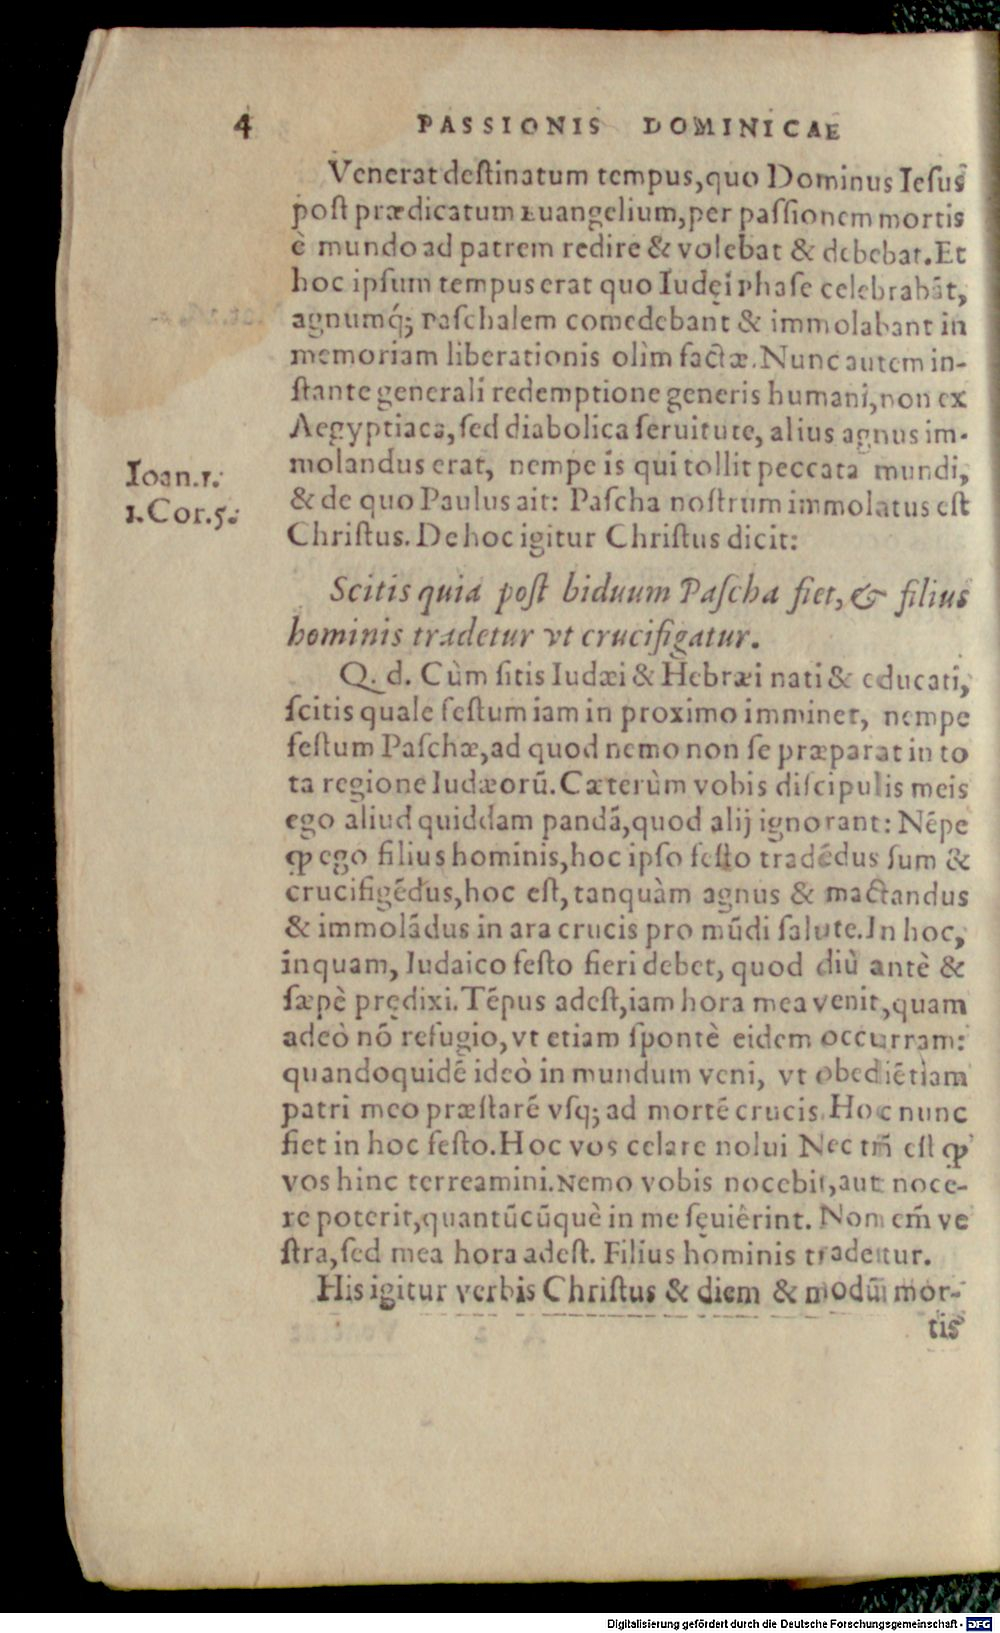 4 PASSIONIS DOMINICAE
Venerat destinatum tempus, quo Dominus Iesus
post prædicatum Euangelium, per passionem mortis
è mundo ad patrem redire & volebat & debebat. Et
hoc ipsum tempus erat quo Iudęi Phase celebrabãt,
agnumq́; Paschalem comedebant & immolabant in
memoriam liberationis olìm factæ. Nunc autem in-
stante generali redemptione generis humani, non ex
Aegyptiaca, sed diabolica seruitute, alius agnus im-
molandus erat, nempe is qui tollit peccata mundi,
Ioan.1.
& de quo Paulus ait: Pascha nostrum immolatus est
1.Cor.5.
Christus. De hoc igitur Christus dicit:
Scitis quia post biduum Pascha fiet, & filius
hominis tradetur vt crucifigatur.
Q. d. Cùm sitis Iudæi & Hebræi nati & educati,
scitis quale festum iam in proximo imminet, nempe
festum Paschæ, ad quod nemo non se præparat in to
ta regione Iudæorũ. Cæterùm vobis discipulis meis
ego aliud quiddam pandã, quod alij ignorant: Nẽpe
ꝙ ego filius hominis, hoc ipso festo tradẽdus sum &
crucifigẽdus, hoc est, tanquàm agnus & mactandus
& immolãdus in ara crucis pro mũdi salute. In hoc,
inquam, Iudaico festo fieri debet, quod diù antè &
sæpè prędixi. Tẽpus adest, iam hora mea venit, quam
adeò nõ refugio, vt etiam spontè eidem occurram:
quandoquidẽ ideò in mundum veni, vt obediẽtiam
patri meo præstarẽ vsq; ad mortẽ crucis. Hoc nunc
fiet in hoc festo. Hoc vos celare nolui Nec tm̃ est ꝙ
vos hinc terreamini. Nemo vobis nocebit, aut noce-
re poterit, quantũcũquè in me sęuiêrint. Non em̃ ve
stra, sed mea hora adest. Filius hominis tradetur.
His igitur verbis Christus & diem & modũ mor-
tis
Digitalisierung gefördert durch die Deutsche Forschungsgemeinschaft - DFG